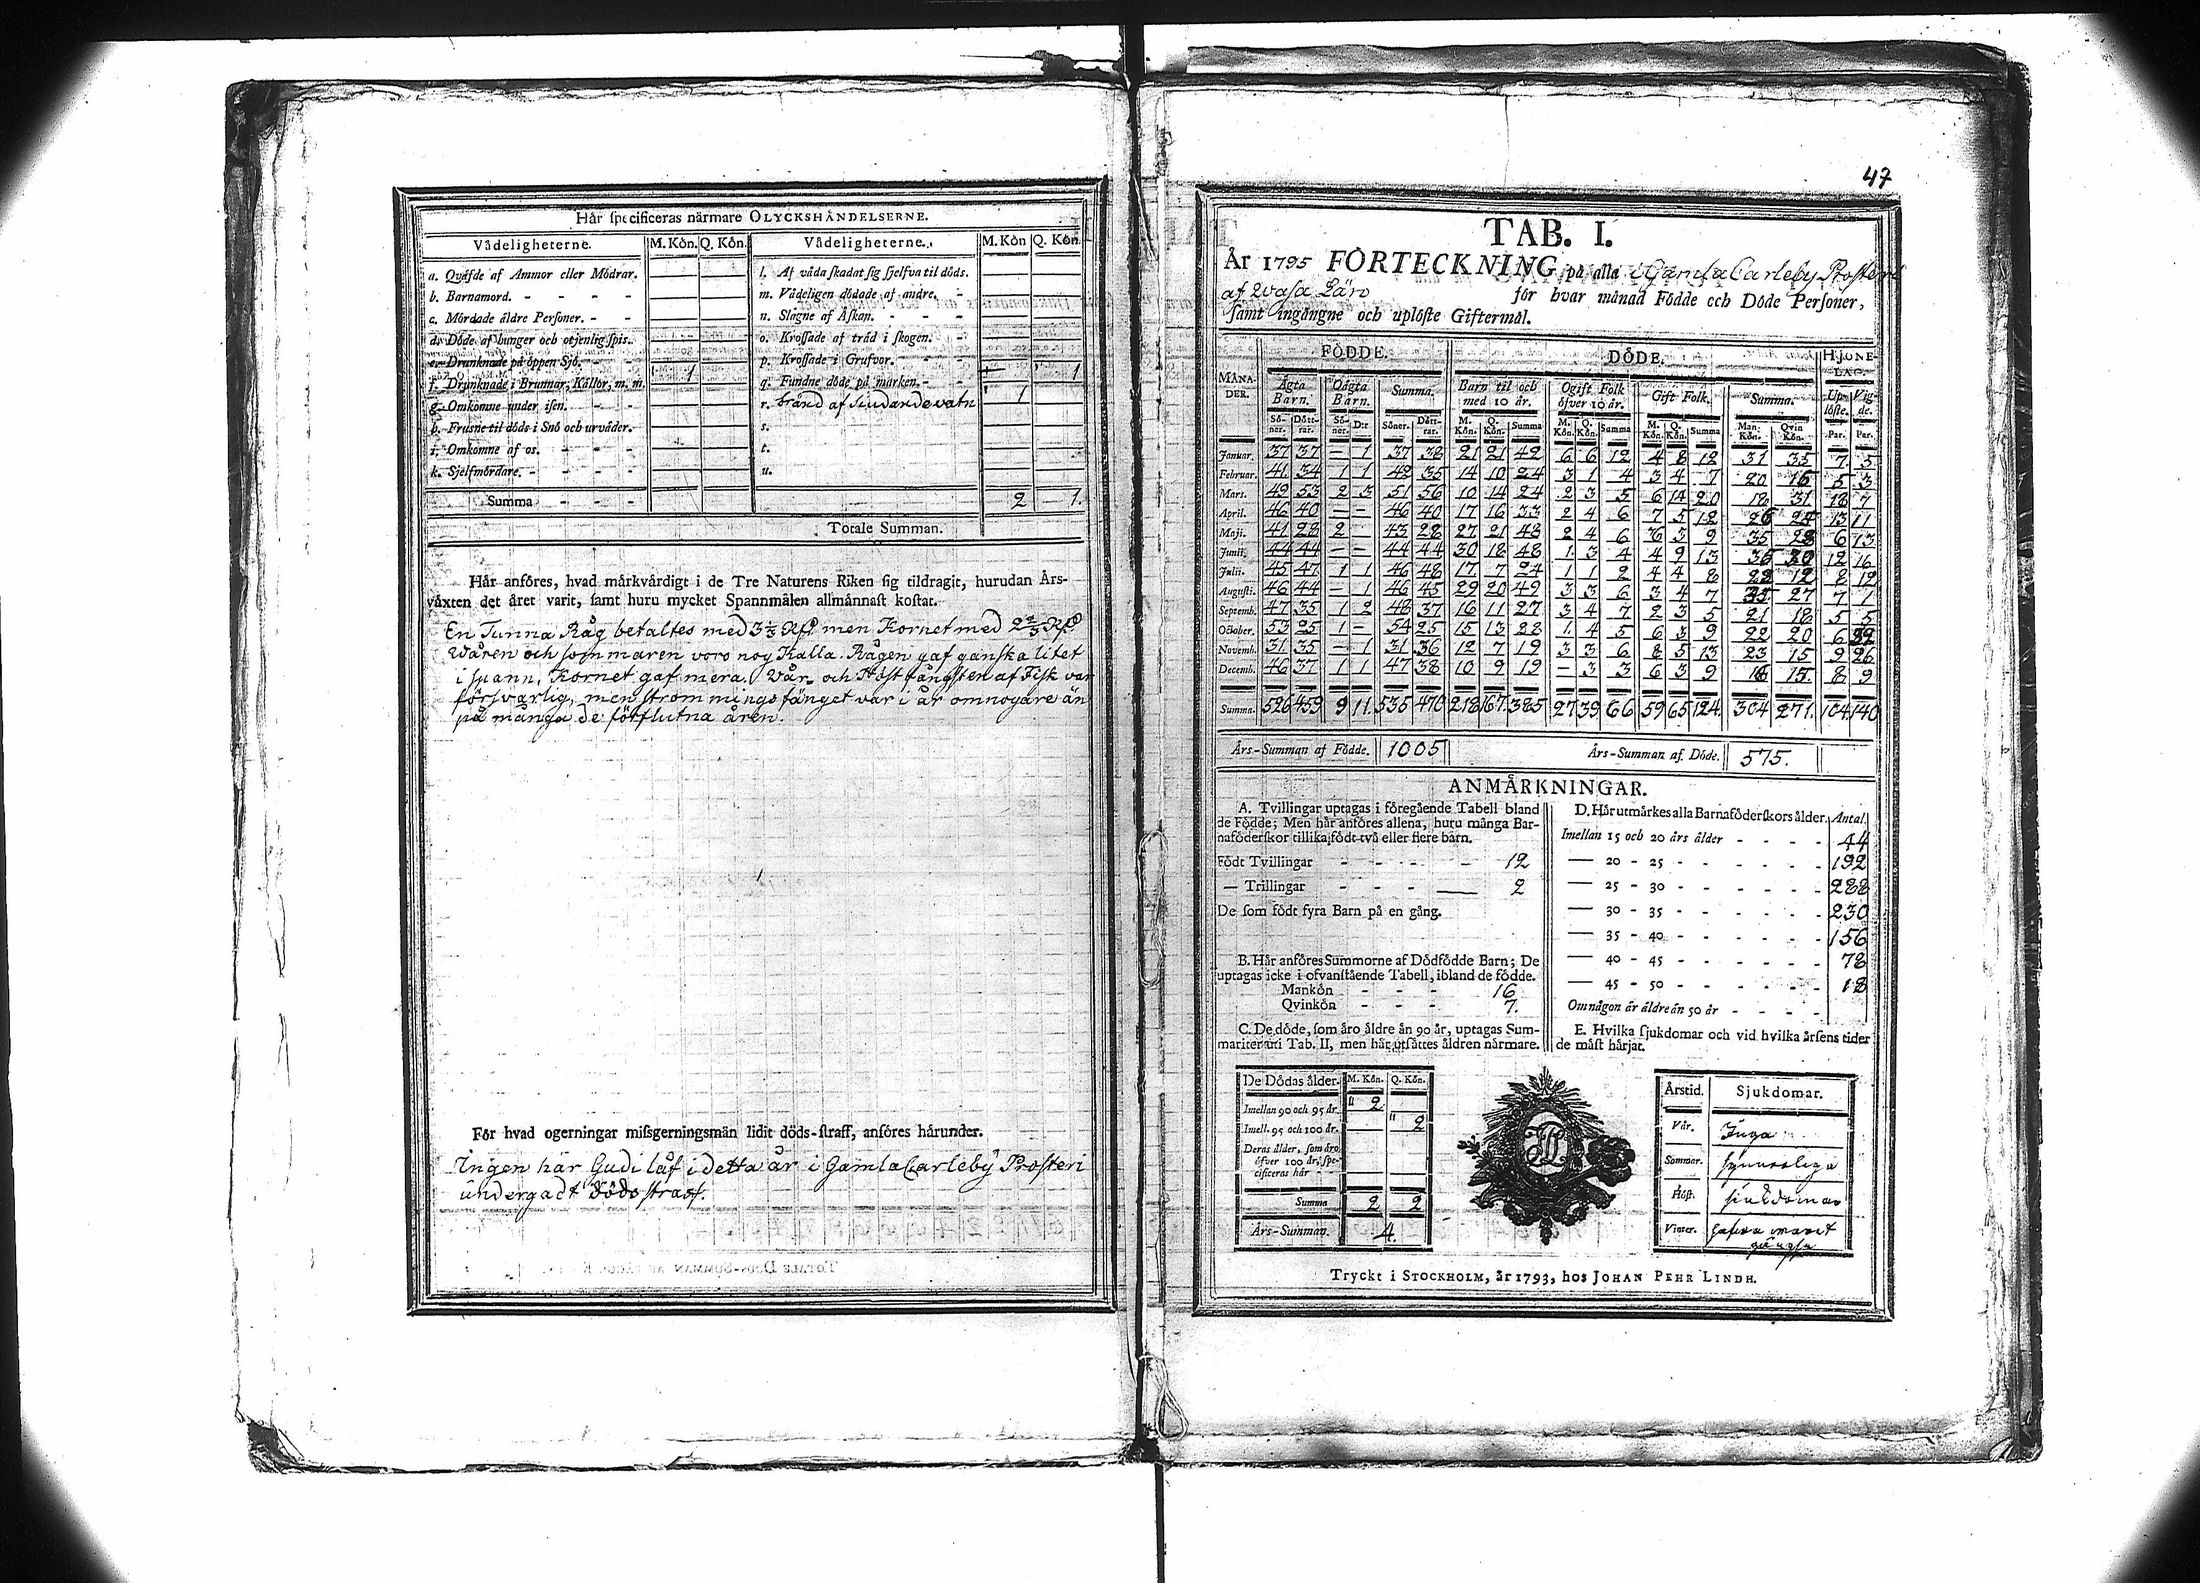 Hår ſpecificeras närmare OLYCKSHÅNDELSERNE.
Vådeligheterne. M. Kön. Q. Kön. Vådeligheterne. M. Kön Q. Kön
a. Qväfde af Ammor eller Mödrar. l. Af våda ſkadat ſig ſjelfva til döds.
b. Barnamord. - - - m. Vådeligen dödade af andre. -
c. Mördade äldre Perſoner. - - n. Slagne af Åſkan. - - -
d. Döde af hunger och otjenlig ſpis. o. Kroſſade af träd i ſkogen. -
e. Drunknade på öppen Sjö. - p. Kroſſade i Grufvor. - -
f. Drunknade i Brunnar, Källor, m. m. 1 q. Fundne döde på marken. - - 1
g. Omkomne under iſen. - - r. bränd af siudande vatn 1
h. Fruſne til döds i Snö och urväder. s.
i. Omkomne af os. - - - t.
k. Sjelfmördare. - - - u.
Summa - - - 2 1.
Totale Summan.
Hår anföres, hvad mårkvårdigt i de Tre Naturens Riken ſig tildragit, hurudan Års-
våxten det året varit, ſamt huru mycket Spannmålen allmånnaſt koſtat.
En Tunna Råg betaltes med 3 1/3 Rſ men Kornet med 2 2/3 Rſ
Wåren och ſommaren voro nog Kalla. Rågen gaf ganſka litet
i ſpann, Kornet gaf mera. Vår- och Höſt fångſten af Fiſk var
förſvarlig, men ſtrömmings fänget var i år omnogare än
på många de förflutna åren.
För hvad ogerningar miſsgerningsmän lidit döds-ſtraff, anföres hårunder.
Ingen har Gudi låf i detta år i Gamla Carleby Proſteri
undergådt Dödsſtraff.
47
TAB. I.
År 1795 FÖRTECKNING på alla i Gamla Carleby Proſteri
af Waſa Län för hvar månad Födde och Döde Perſoner,
ſamt ingångne och uplöſte Giftermål.
MÅNADER. FÖDDE. DÖDE. HJONELAG.
Ägta Barn. Oägta Barn. Summa. Barn til och med 10 år. Ogift Folk öfver 10 år. Gift Folk. Summa. Uplöſte. Vigde.
Söner. Döttrar. Söner. D:r Söner. Döttrar. M. Kön. Q. Kön. Summa M. Kön. Q. Kön. Summa M. Kön. Q. Kön. Summa Man-Kön. Qvin Kön. Par. Par.
Januar. 37 37 — 1 37 38 21 21 42 6 6 12 4 8 12 31 35 7 5
Februar. 41 34 1 1 42 35 14 10 24 3 1 4 3 4 7 20 15 5 3
Mars. 49 53 2 3 51 56 10 14 24 2 3 5 6 14 20 18 31 18 7
April. 46 40 — — 46 40 17 16 33 2 4 6 7 5 12 26 25 13 11
Maji. 41 28 2 43 28 27 21 48 2 4 6 6 3 9 35 28 6 13
Junii. 44 44 — — 44 44 30 18 48 1 3 4 4 9 13 35 30 12 16
Julii. 45 47 1 1 46 48 17 7 24 1 1 2 4 4 8 22 12 8 12
Auguſti. 46 44 — 1 46 45 29 20 49 3 3 6 3 4 7 35 27 7 1
Septemb. 47 35 1 2 48 37 16 11 27 3 4 7 2 3 5 21 18 5 5
October. 53 25 1 — 54 25 15 13 28 1 4 5 6 3 9 22 20 6 32
Novemb. 31 35 — 1 31 36 12 7 19 3 3 6 8 5 13 23 15 9 26
Decemb. 46 37 1 1 47 38 10 9 19 — 3 3 6 3 9 16 15. 8 9
Summa. 526 459 9 11. 535 470 218 167. 385 27 39 66 59 65 124. 304 271. 104. 140
Års-Summan af Födde. 1005 Års-Summan af Döde. 575.
ANMÅRKNINGAR.
A. Tvillingar uptagas i föregående Tabell bland
de Födde; Men här anföres allena, huru många Bar-
naföderſkor tillika födt två eller flere barn.
Födt Tvillingar - - - - 12
— Trillingar - - - 2
De ſom födt fyra Barn på en gång.
B. Hår anföres Summorne af Dödfödde Barn; De
uptagas icke i ofvanſtående Tabell, ibland de födde.
Mankön - - - 16
Qvinkön - - - 7.
C. De döde, ſom äro äldre än 90 år, uptagas Sum-
mariter uti Tab. II, men hår utſättes åldren nårmare.
D. Hår utmårkes alla Barnaföderſkors ålder. Antal.
Imellan 15 och 20 års ålder - - - - 44
— 20 - 25 - - - - - - 192
— 25 - 30 - - - - - - 288
— 30 - 35 - - - - - - 230
— 35 - 40 - - - - - - 156
— 40 - 45 - - - - - - 78
— 45 - 50 - - - - - - 18
Om någon är äldre än 50 år - - - -
E. Hvilka ſjukdomar och vid hvilka årſens tider
de måſt hårjat.
De Dödas ålder. M. Kön. Q. Kön.
Imellan 90 och 95 år. " 2
Imell. 95 och 100 år. " 2
Deras ålder, ſom äro
öfver 100 år, ſpe-
cificeras hår - -
Summa 2 2
Års-Summan. 4.
Årstid. Sjukdomar.
Vår. Inga
Sommar. ſynnerliga
Höſt. ſiukdomar
Vinter. hafva varit
gängſe
Tryckt i STOCKHOLM, år 1793, hos JOHAN PEHR LINDH.